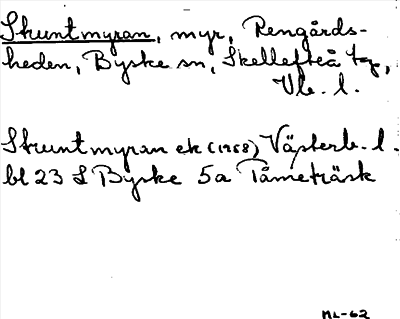 Skuntmyran, myr, Rengårds-
heden, Byske sn, Skellefteå tg,
Vb. l.
Skuntmyran ek (1968) Västerb. l.
bl 23 L Byske 5a Tåmeträsk
ML-62